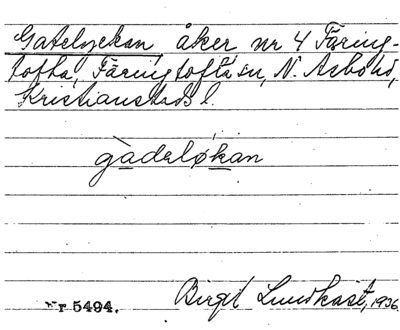 Gatelyckan, åker nr 4 Färing-
tofta, Färingtofta sn, N. Åsbo hd,
Kristianstads l.
gàdeløkan
Nr 5494. Birgit Lundkast, 1936